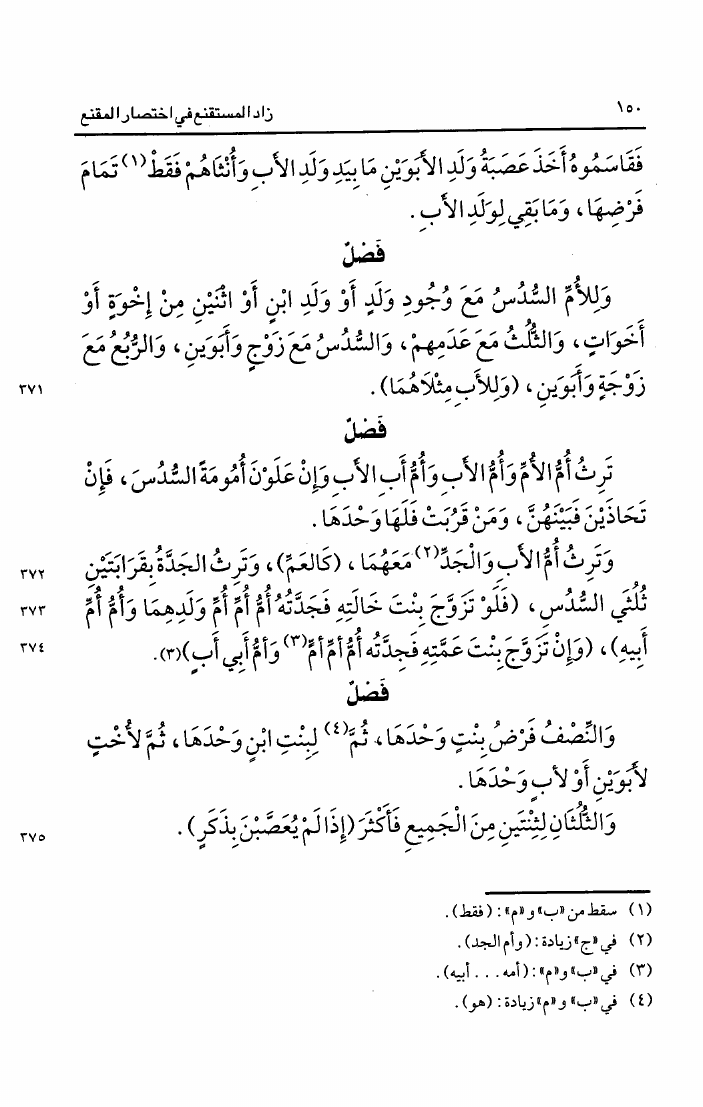 ١٥٠ زاد المستقنع في اختصار المقنع
فَقَاسَمُوهُ أَخَذَ عَصَبَةُ وَلَدِ الأَبَوَيْنِ مَا بِيَدِ وَلَدِ الأَبِ وَأُنْثَاهُمْ فَقَطْ(١) تَمَامَ
فَرْضِهَا، وَمَا بَقِي لِوَلَدِ الأَبِ.
فَصْلٌ
وَلِلأُمِّ السُّدُسُ مَعَ وُجُودِ وَلَدٍ أَوْ وَلَدِ ابْنٍ أَوْ اثْنَيْنِ مِنْ إِخْوَةٍ أَوْ
أَخَوَاتٍ، وَالثُّلُثُ مَعَ عَدَمِهِمْ، وَالسُّدُسُ مَعَ زَوْجٍ وَأَبَوَينِ، وَالرُّبُعُ مَعَ
زَوْجَةٍ وَأَبَوَينِ، (وَلِلأَبِ مِثْلَاهُمَا). ٣٧١
فَصْلٌ
تَرِثُ أُمُّ الأُمِّ وَأُمُّ الأَبِ وَأُمُّ أَبِ الأَبِ وَإِنْ عَلَوْنَ أُمُومَةً السُّدُسَ، فَإِنْ
تَحَاذَيْنَ فَبَيْنَهُنَّ، وَمَنْ قَرُبَتْ فَلَهَا وَحْدَهَا.
وَتَرِثُ أُمُّ الأَبِ وَالْجَدِّ(٢) مَعَهُمَا، (كَالعَمِّ)، وَتَرِثُ الجَدَّةُ بِقَرَابَتَيْنِ ٣٧٢
ثُلُثَي السُّدُسِ، (فَلَوْ تَزَوَّجَ بِنْتَ خَالَتِهِ فَجَدَّتُهُ أُمُّ أُمِّ أُمِّ وَلَدِهِمَا وَأُمُّ أُمِّ ٣٧٣
أَبِيهِ)، (وَإِنْ تَزَوَّجَ بِنْتَ عَمَّتِهِ فَجِدَّتُه أُمُّ أمِّ أمِّ(٣) وَأمُّ أَبي أَبٍ)(٣). ٣٧٤
فَصْلٌ
وَالنِّصْفُ فَرْضُ بِنْتٍ وَحْدَهَا، ثُمَّ(٤) لِبِنْتِ ابْنٍ وَحْدَهَا، ثُمَّ لأُخْتٍ
لأَبَوَيْنِ أَوْ لأَبٍ وَحْدَهَا.
وَالثُّلُثَانِ لِثِنْتَينِ مِنَ الْجَمِيعِ فَأَكْثَرَ (إِذَا لَمْ يُعَصَّبْنَ بِذَكَرٍ). ٣٧٥
(١) سقط من «ب» و «م»: (فقط).
(٢) في «ج» زيادة: (وأم الجد).
(٣) في «ب» و«م»: (أمه . . . أبيه).
(٤) في «ب» و «م» زيادة: (هو).